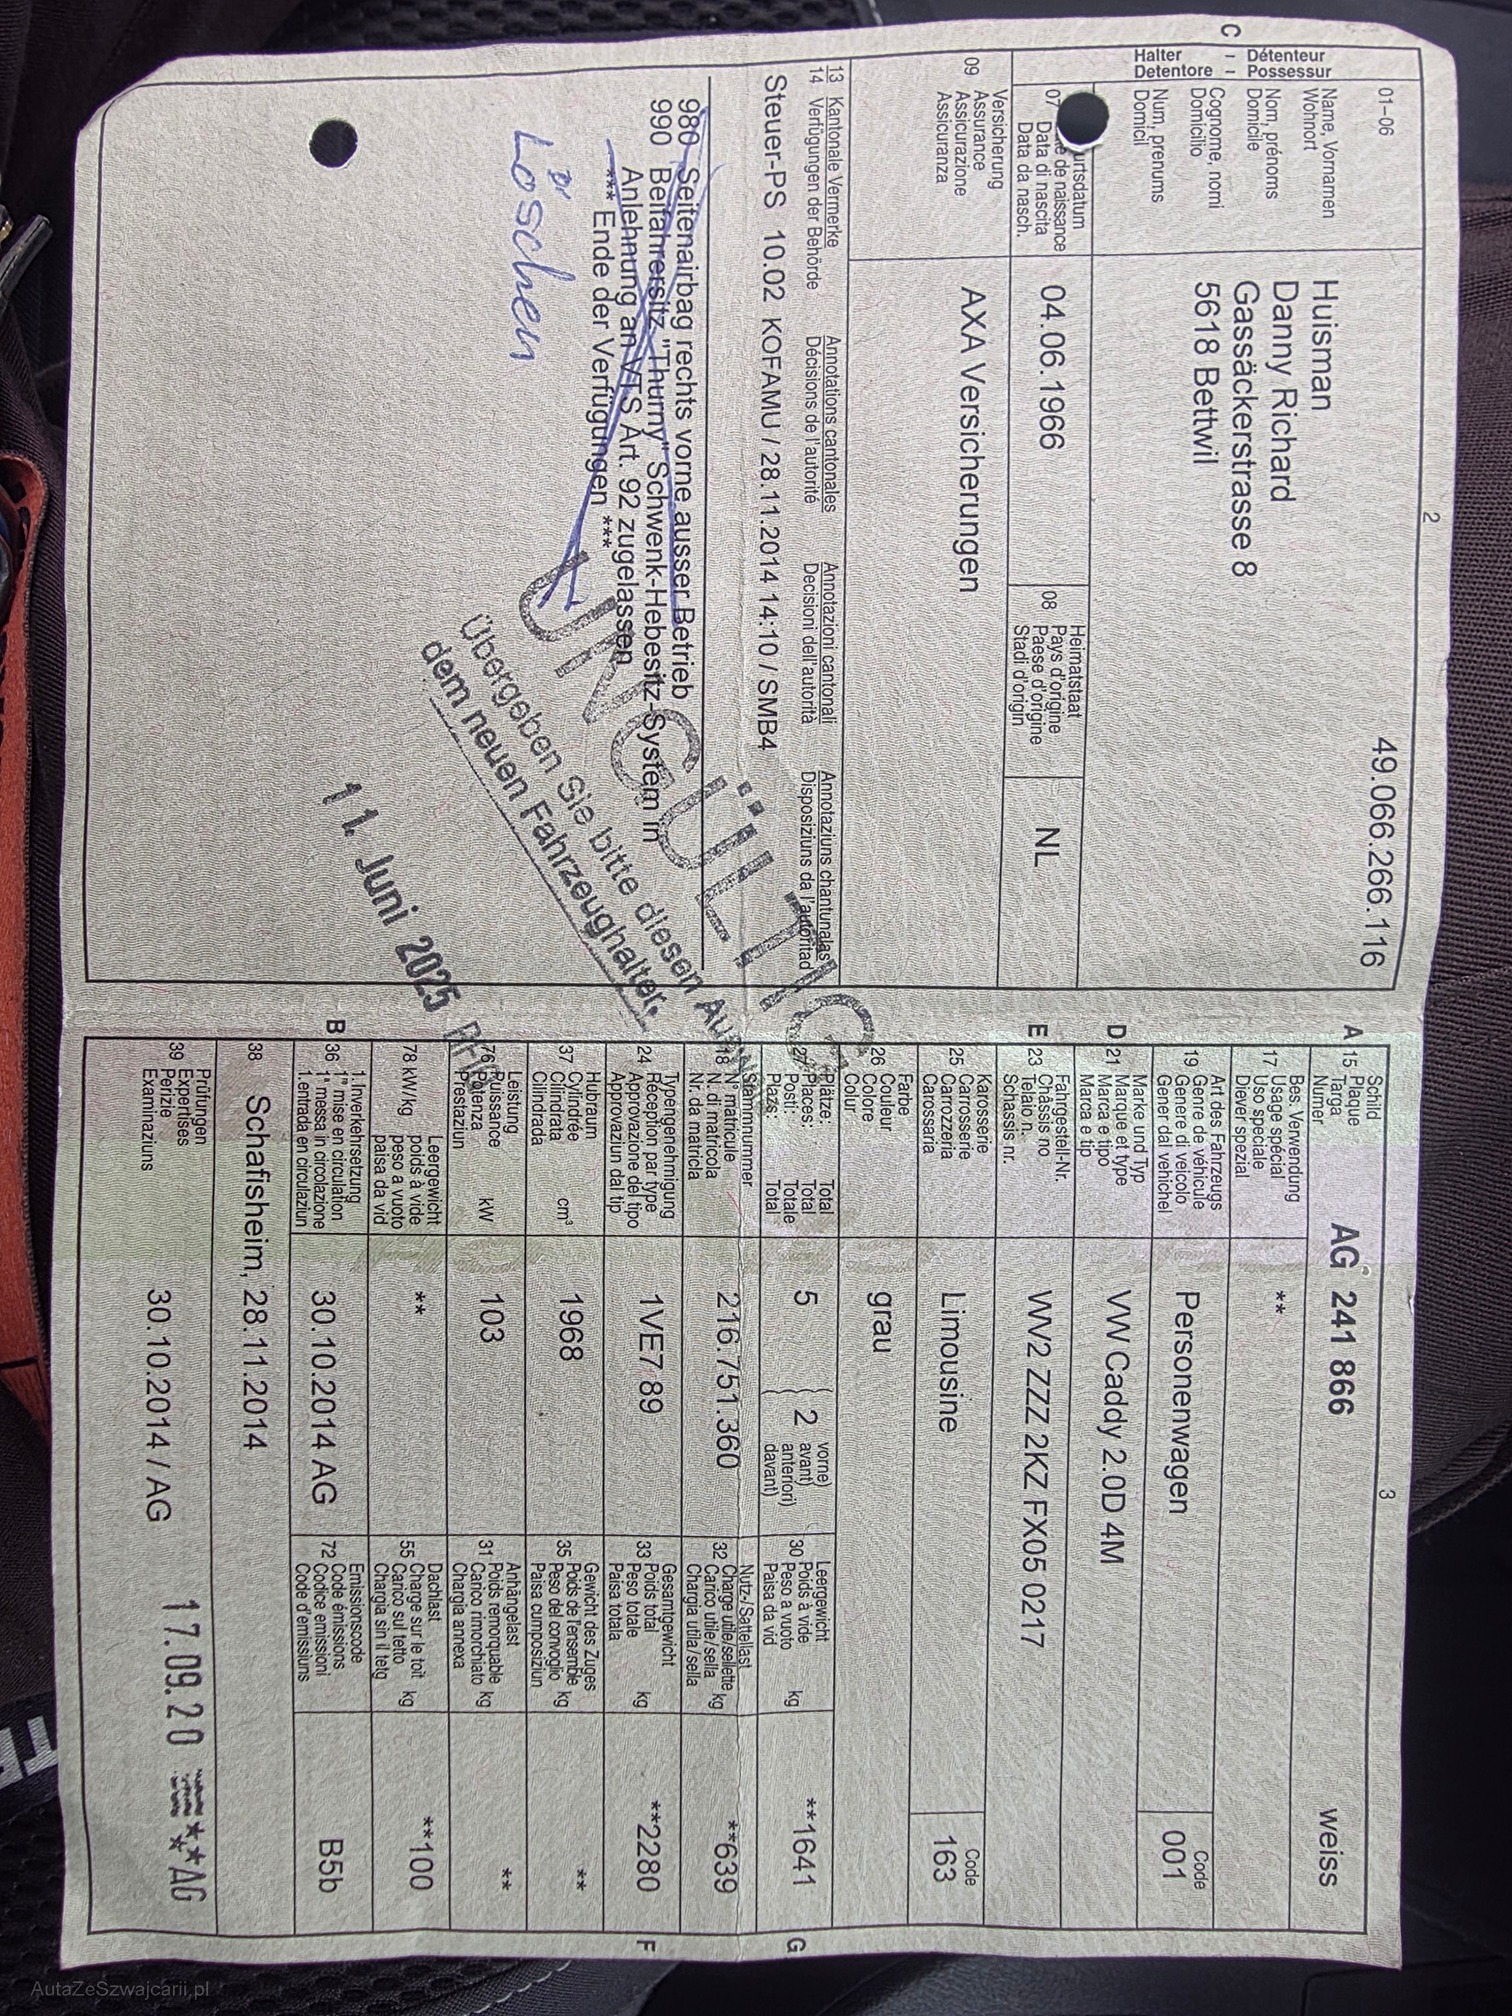 2
49.066.266.116
01-06
C - Détenteur - Possessur
Halter
Detentore
Name, Vornamen
Wohnort
Nom, prénoms
Domicile
Cognome, nomi
Domicilio
Num, prenums
Domicil
Huisman
Danny Richard
Gassäckerstrasse 8
5618 Bettwil
07
urtsdatum
de naissance
Data di nascita
Data da nasch.
04.06.1966
08
Heimatstaat
Pays d'origine
Paese d'origine
Stadi d'origin
NL
09
Versicherung
Assurance
Assicurazione
Assicuranza
AXA Versicherungen
13 Kantonale Vermerke Annotations cantonales Annotazioni cantonali Annotaziuns chantunalas
14 Verfügungen der Behörde Décisions de l'autorité Decisioni dell'autorità Disposiziuns da l'autoritad
Steuer-PS 10.02 KOFAMU / 28.11.2014 14:10 / SMB4
980 Seitenairbag rechts vorne ausser Betrieb
990 Beifahrersitz "Thurny" Schwenk-Hebesitz-System in
Anlehnung an VTS Art. 92 zugelassen
*** Ende der Verfügungen ***
Löschen
UNGÜLTIG
Übergeben Sie bitte diesen
dem neuen Fahrzeughalter.
11. Juni 2025
3
A 15
Schild
Plaque
Targa
Numer
AG 241 866
weiss
17
Bes. Verwendung
Usage spécial
Uso speciale
Diever spezial
**
19
Art des Fahrzeugs
Genre de véhicule
Genere di veicolo
Gener dal vehichel
Personenwagen
Code
001
D 21
Marke und Typ
Marque et type
Marca e tipo
Marca e tip
VW Caddy 2.0D 4M
E 23
Fahrgestell-Nr.
Châssis no
Telaio n.
Schassis nr.
WV2 ZZZ 2KZ FX05 0217
25
Karosserie
Carrosserie
Carrozzeria
Carossaria
Limousine
Code
163
26
Farbe
Couleur
Colore
Colur
grau
27
Plätze: Total
Places: Total
Posti: Totale
Plazs: Total
5
2
vorne)
avant)
anteriori)
davant)
30
Leergewicht
Poids à vide
Peso a vuoto
Paisa da vid
kg
**1641
G
18
Stammnummer
N° matricule
N. di matricola
Nr. da matricla
216.751.360
32
Nutz-/Sattellast
Charge utile/sellette
Carico utile/sella
Chargia utila/sella
kg
**639
24
Typengenehmigung
Réception par type
Approvazione del tipo
Approvaziun dal tip
1VE7 89
33
Gesamtgewicht
Poids total
Peso totale
Paisa totala
kg
**2280
F
37
Hubraum
Cylindrée
Cilindrata
Cilindrada
cm³
1968
35
Gewicht des Zuges
Poids de l'ensemble
Peso del convoglio
Paisa cumposiziun
kg
**
76
Leistung
Puissance
Potenza
Prestaziun
kW
103
31
Anhängelast
Poids remorquable
Carico rimorchiato
Chargia annexa
kg
**
78 kW/kg
Leergewicht
poids à vide
peso a vuoto
paisa da vid
**
55
Dachlast
Charge sur le toit
Carico sul tetto
Chargia sin il tetg
kg
**100
B 36
1. Inverkehrsetzung
1re mise en circulation
1a messa in circolazione
1. entrada en circulaziun
30.10.2014 AG
72
Emissionscode
Code émissions
Codice emissioni
Code d'emissiuns
B5b
38
Schafisheim, 28.11.2014
39
Prüfungen
Expertises
Perizie
Examinaziuns
30.10.2014 / AG
17.09.20 **AG
AutaZeSzwajcarii.pl